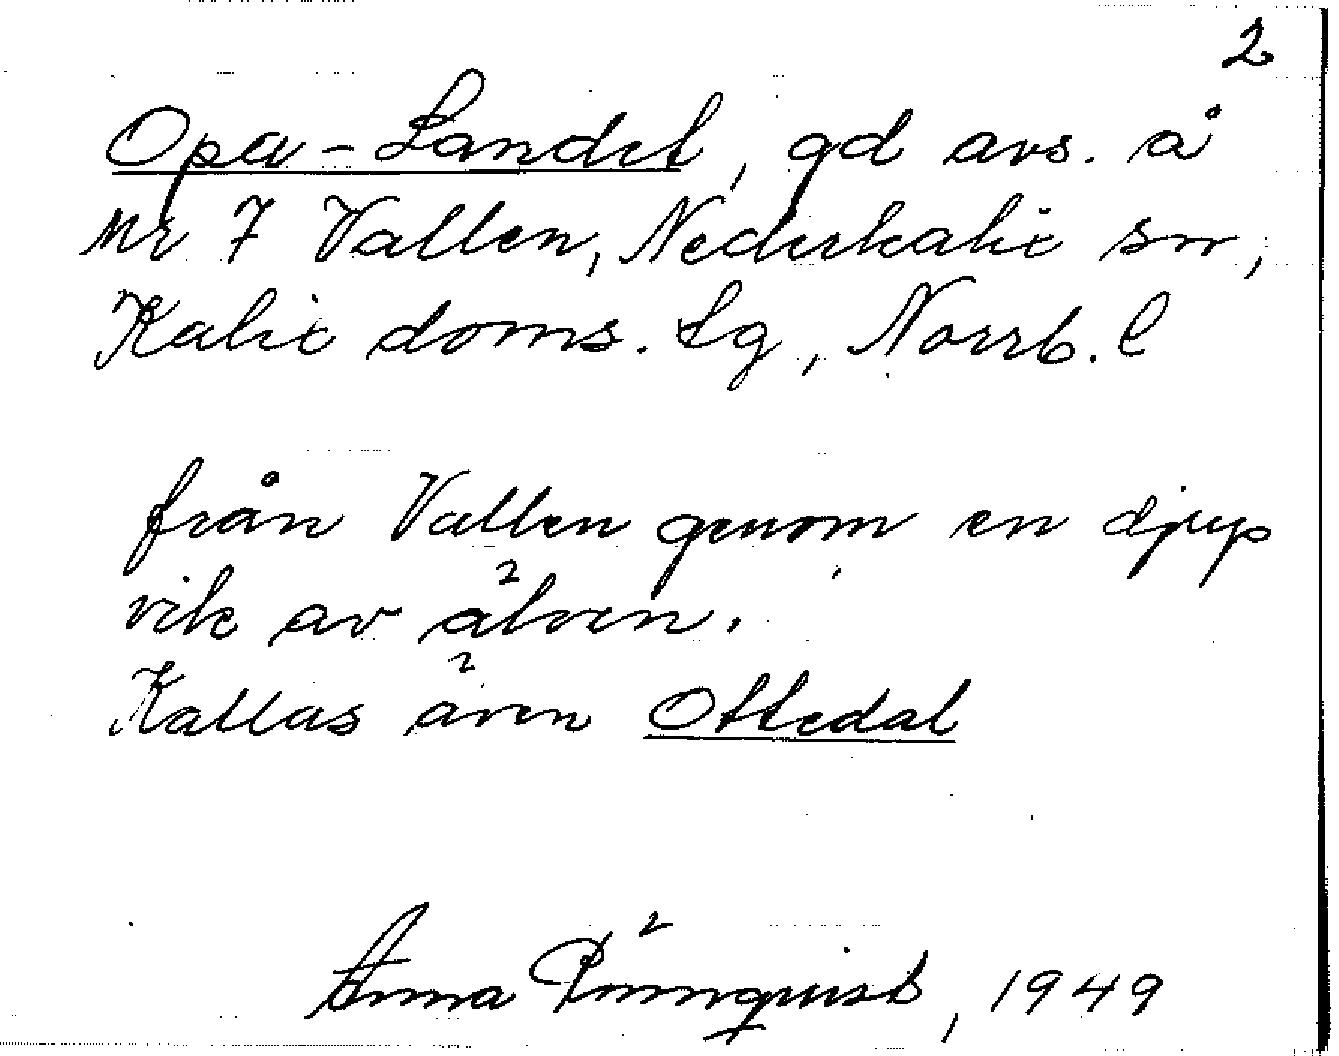 2
Opa-Landet, gd avs. å
Nr 7 Vallen, Nederkalix sn,
Kalix doms. lg, Norrb. l
från Vallen genom en djup
vik av älven.
Kallas även Ottedal
Anna Rönnquist, 1949